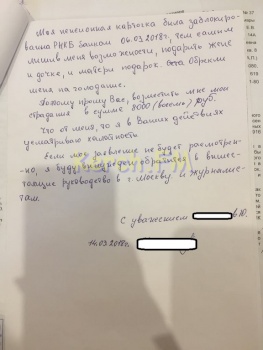 Моя пенсионная карточка была заблокиро-
вана РНКБ Банком 06.03.2018г, тем самым
лишив меня возможности, подарить жене
и дочке, и матери подарок. Обрекли
меня на голодание.
Поэтому прошу Вас, возместить мне мои
страдания в сумме 8000 (восемь) руб.
Что от меня, то я в Ваших действиях
усматриваю халатность.
Если моё заявление не будет рассмотрен-
но, я буду вынужден обратится в вышес-
тоящие руководство в г. Москву. и журналис-
там.
С уважением
14.03.2018г.